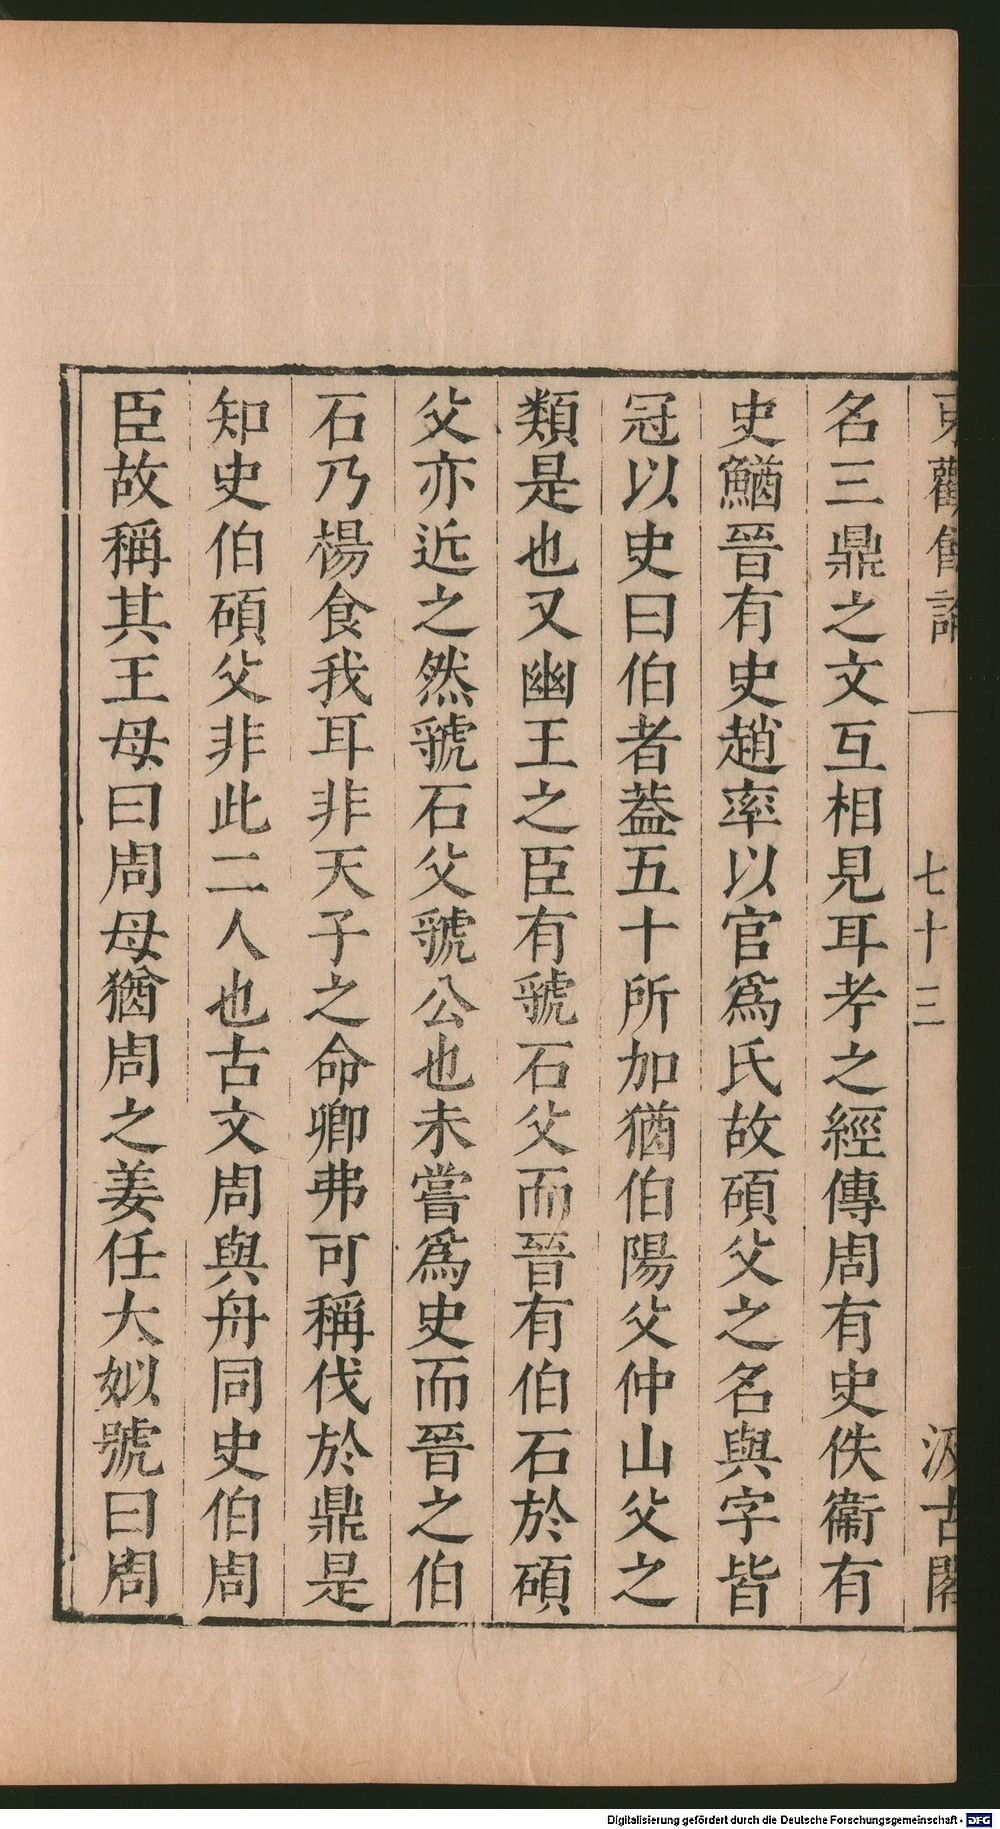 東觀餘論 一 七十三 汲古閣
名三鼎之文互相見耳孝之經傳周有史佚衞有
史鰌晉有史趙率以官爲氏故碩父之名與字皆
冠以史曰伯者葢五十所加猶伯陽父仲山父之
類是也又幽王之臣有虢石父而晉有伯石於碩
父亦近之然虢石父虢公也未嘗爲史而晉之伯
石乃楊食我耳非天子之命卿弗可稱伐於鼎是
知史伯碩父非此二人也古文周與舟同史伯周
臣故稱其王母曰周母猶周之姜任大姒號曰周
Digitalisierung gefördert durch die Deutsche Forschungsgemeinschaft - DFG